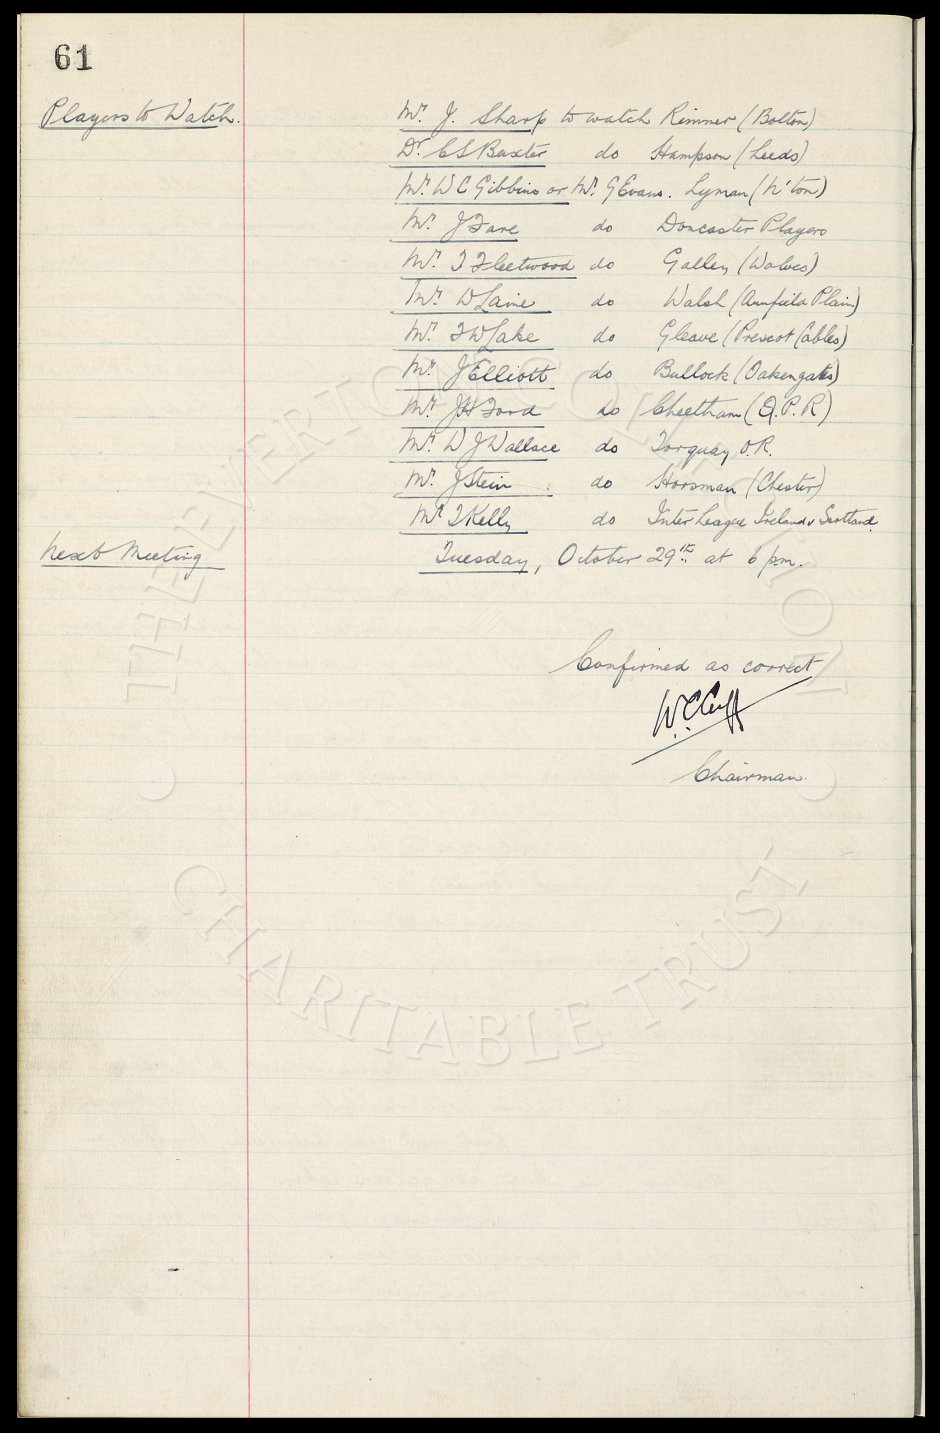 61
Players to Watch. Mr. J. Sharp to watch Rimmer (Bolton)
Dr. C S Baxter do Hampson (Leeds)
Mr. W C Gibbins or Mr. G Evans. Lyman (N'ton)
Mr. J Fare do Doncaster Players
Mr. T Fleetwood do Galley (Wolves)
Mr. W Laine do Walsh (Annfield Plain)
Mr. F W Lake do Gleave (Prescot Cables)
Mr. J Elliott do Bullock (Oakengates)
Mr. J H Ford do Cheetham (Q.P.R)
Mr. W J Wallace do Torquay O.R.
Mr. J Stein do Horsman (Chester)
Mr T Kelly do Inter League Ireland v Scotland.
Next Meeting Tuesday, October 29th at 6 pm.
Confirmed as correct
W.C. Cuff
Chairman.
THE EVERTON COLLECTION
CHARITABLE TRUST